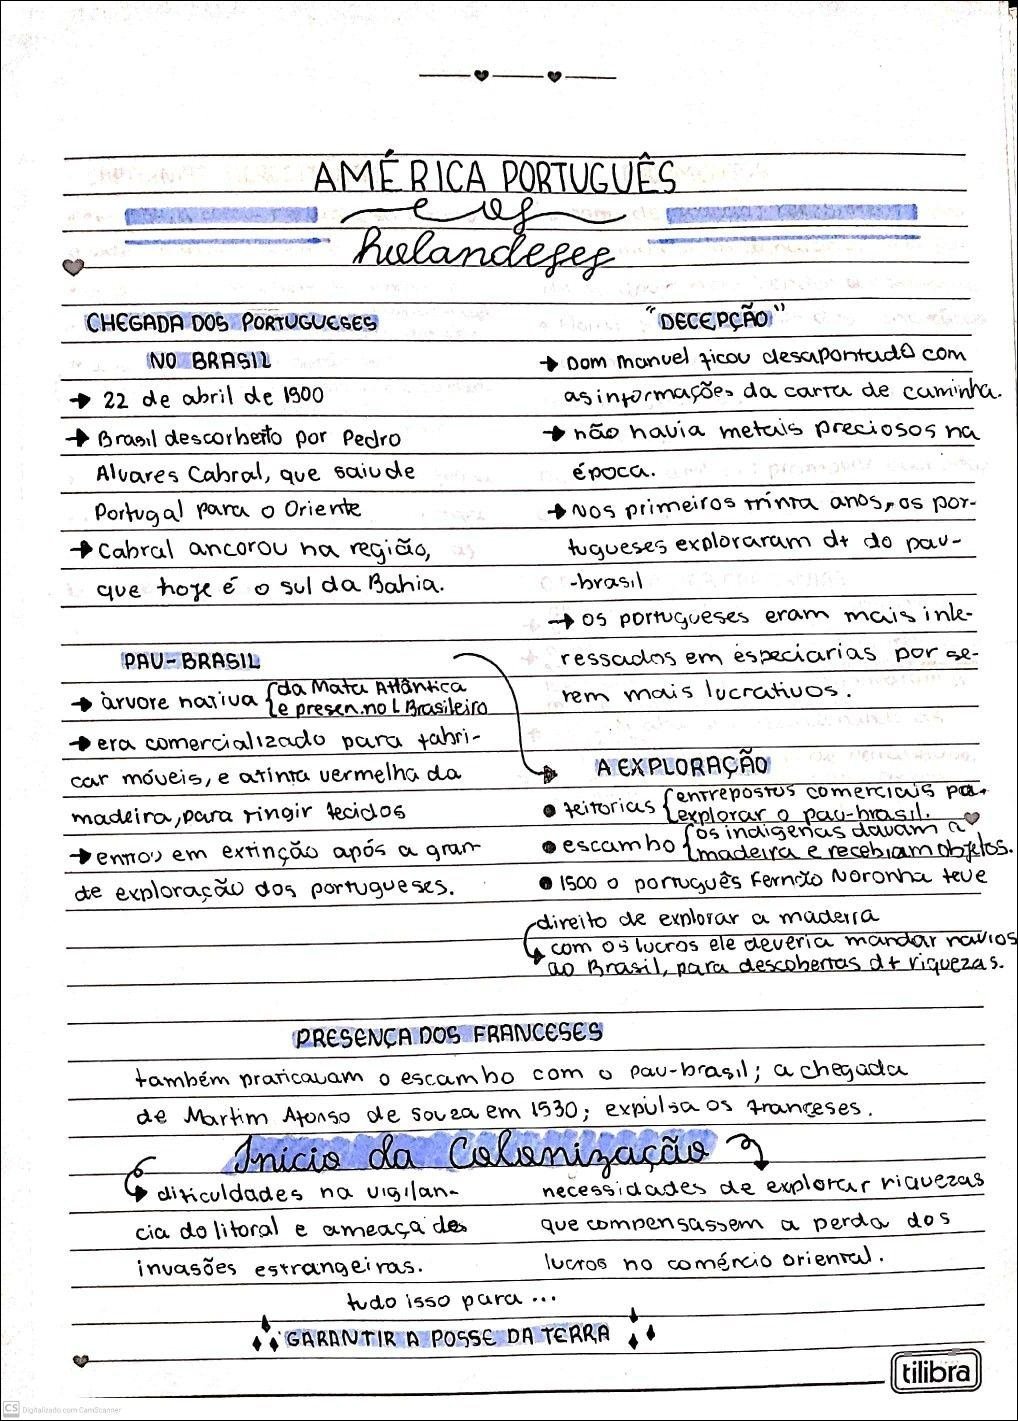 AMÉRICA PORTUGUÊS
e os
holandeses
CHEGADA DOS PORTUGUESES
NO BRASIL
→ 22 de abril de 1500
→ Brasil descorberto por Pedro
Alvares Cabral, que saiu de
Portugal para o Oriente
→ Cabral ancorou na região,
que hoje é o sul da Bahia.
PAU-BRASIL
→ àrvore nativa { da Mata Atlântica
e presen. no L Brasileiro
→ era comercializado para fabri-
car móveis, e a tinta vermelha da
madeira, para tingir tecidos
→ entrou em extinção após a gran
de exploração dos portugueses.
"DECEPÇÃO"
→ Dom Manuel ficou desapontado com
as informações da carta de caminha.
→ não havia metais preciosos na
época.
→ Nos primeiros trinta anos, os por-
tugueses exploraram d+ do pau-
-brasil
→ os portugueses eram mais inte-
ressados em especiarias por se-
rem mais lucrativos.
A EXPLORAÇÃO
• feitorias { entrepostos comerciais pa.
explorar o pau-brasil.
• escambo { os indigenas davam a
madeira e recebiam objetos.
• 1500 o português Fernão Noronha teve
direito de explorar a madeira
→ com os lucros ele deveria mandar navios
ao Brasil, para descobertas d+ riquezas.
PRESENÇA DOS FRANCESES
também praticavam o escambo com o pau-brasil; a chegada
de Martim Afonso de Souza em 1530; expulsa os franceses.
Início da Colonização
→ dificuldades na vigilan-
cia do litoral e ameaça des
invasões estrangeiras.
necessidades de explorar riquezas
que compensassem a perda dos
lucros no comércio oriental.
tudo isso para ...
GARANTIR A POSSE DA TERRA
tilibra
CS Digitalizado com CamScanner